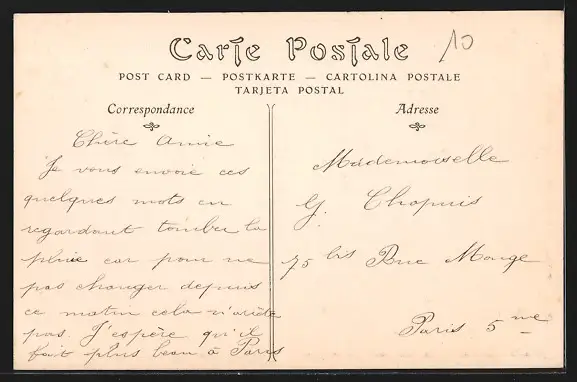 10
Carte Postale
POST CARD — POSTKARTE — CARTOLINA POSTALE
TARJETA POSTAL
Correspondance
Chère Amie
Je vous envoie ces
quelques mots en
regardant tomber la
pluie car pour ne
pas changer depuis
ce matin cela n'arrête
pas. J'espère qu'il
fait plus beau à Paris
Adresse
Mademoiselle
G. Chapuis
75 bis Rue Monge
Paris 5me